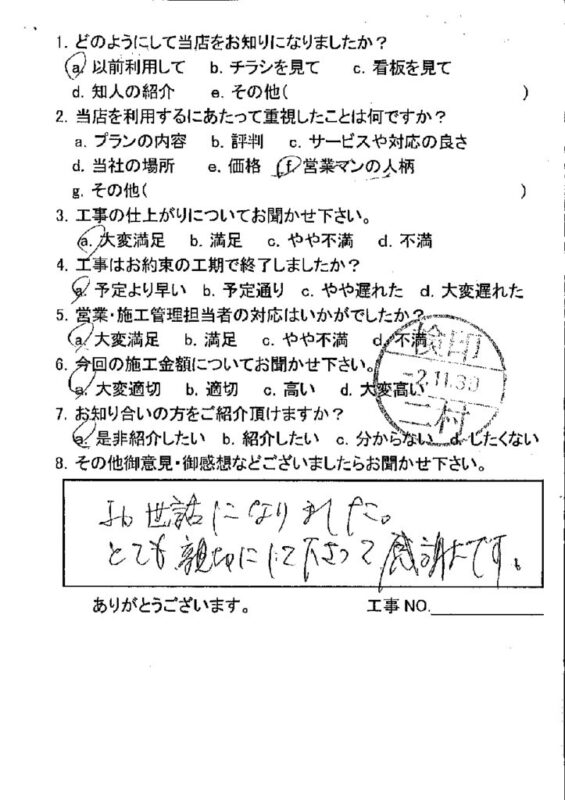 1. どのようにして当店をお知りになりましたか？
a. 以前利用して b. チラシを見て c. 看板を見て
d. 知人の紹介 e. その他( )
2. 当店を利用するにあたって重視したことは何ですか？
a. プランの内容 b. 評判 c. サービスや対応の良さ
d. 当社の場所 e. 価格 f. 営業マンの人柄
g. その他( )
3. 工事の仕上がりについてお聞かせ下さい。
a. 大変満足 b. 満足 c. やや不満 d. 不満
4. 工事はお約束の工期で終了しましたか？
a. 予定より早い b. 予定通り c. やや遅れた d. 大変遅れた
5. 営業・施工管理担当者の対応はいかがでしたか？
a. 大変満足 b. 満足 c. やや不満 d. 不満
検印
-2.11.30
二村
6. 今回の施工金額についてお聞かせ下さい。
a. 大変適切 b. 適切 c. 高い d. 大変高い
7. お知り合いの方をご紹介頂けますか？
a. 是非紹介したい b. 紹介したい c. 分からない d. したくない
8. その他御意見・御感想などございましたらお聞かせ下さい。
お世話になりました。
とても親切にして下さって感謝です。
ありがとうございます。 工事 NO.